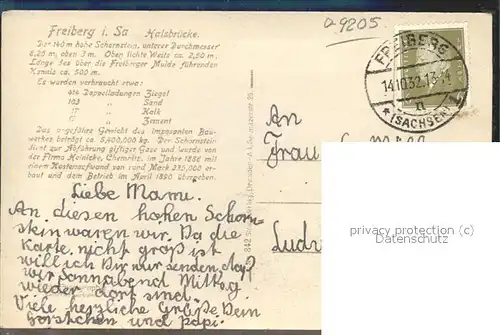 a 9205
Freiberg i. Sa Halsbrücke.
Der 140 m hohe Schornstein, unterer Durchmesser
5,25 m, oben 3 m. Ober lichte Weite ca. 2,50 m.
Länge des über die Freiberger Mulde führenden
Kanals ca. 500 m.
Es wurden verbraucht etwa:
414 Doppelladungen Ziegel
103 " Sand
17 " Kalk
" Zement
Das ungefähre Gewicht des imposanten Bau-
werkes beträgt ca. 5,400,000 kg. Der Schornstein
dient zur Abführung giftiger Gase und wurde von
der Firma Heinicke, Chemnitz, im Jahre 1888 mit
einem Kostenaufwand von rund Mark 235,000 er-
baut und dem Betrieb im April 1890 übergeben.
FREIBERG
14.10.32.13-14
n
*(SACHSEN)
An
Frau
Ludw
Liebe Mami.
An diesen hohen Schorn-
stein waren wir. Da die
Karte nicht groß ist
will ich Dir nur senden, daß
wir Sonnabend Mittag
wieder dort sind.
Viele herzliche Grüße Dein
Horstchen und Papi.
privacy protection
Datenschutz